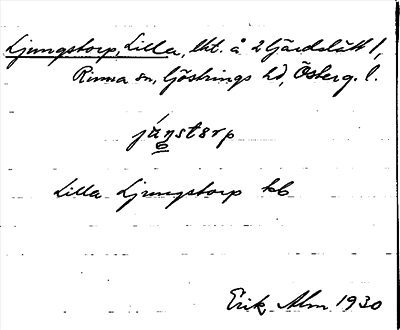 Ljungstorp, Lilla, lht. å 2 Gärdslätt 1,
Rinna sn, Göstrings hd, Österg. l.
jáŋstɛrp
Lilla Ljungstorp kb
Erik Alm 1930